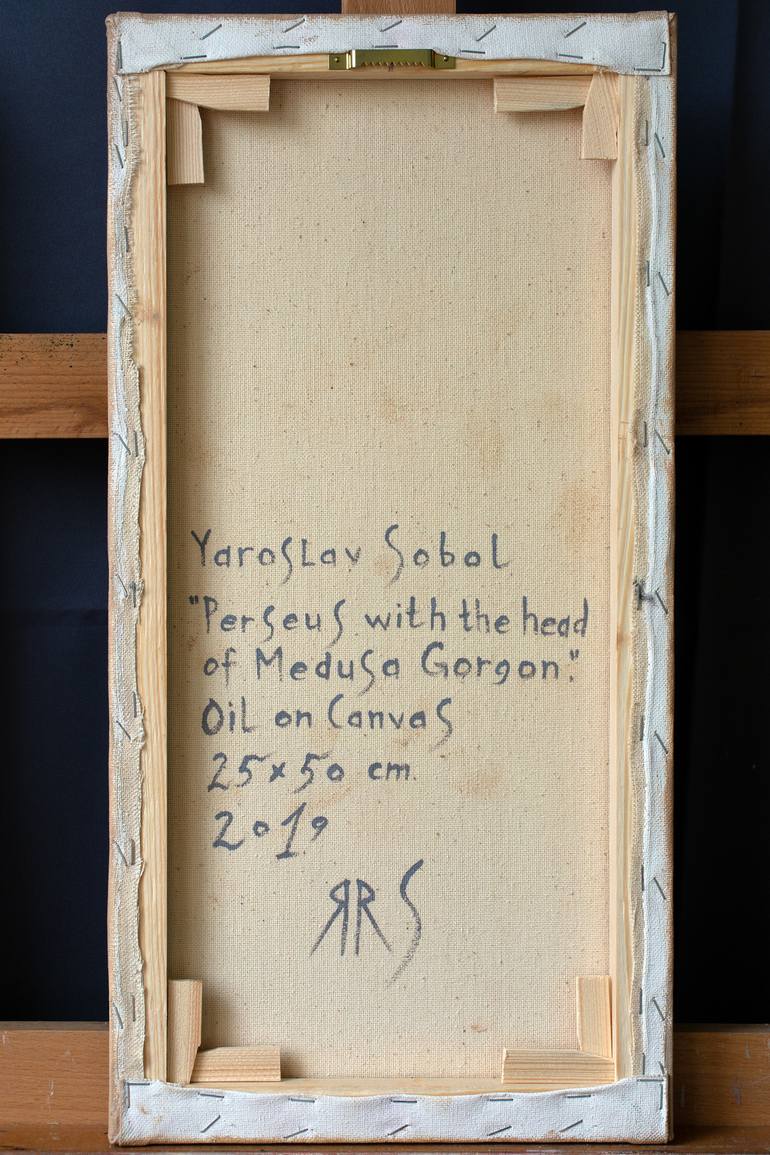 Yaroslav Sobol
"Perseus with the head
of Medusa Gorgon."
Oil on Canvas
25x50 cm.
2019
ЯRS